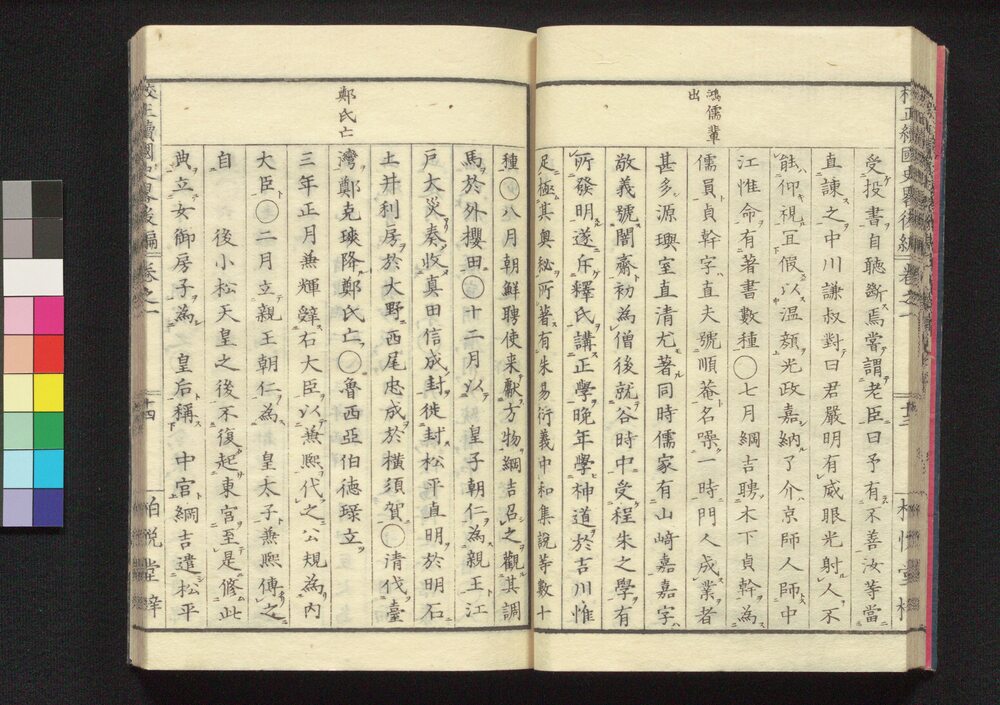 校正續國史畧後編 卷之一
十三
鴻儒輩
出
受投書自聽斷焉嘗謂老臣曰予有不善汝等當
直諫之中川謙叔對曰君嚴明有威眼光射人不
能仰視冝假以温顔光政嘉納了介京師人師中
江惟命有著書數種〇七月綱吉聘木下貞幹為
儒員貞幹字直夫號順菴名噪一時門人成業者
甚多源璵室直清尤著同時儒家有山﨑嘉嘉字
敬義號闇齋初為僧後就谷時中受程朱之學有
所發明遂斥釋氏講正學晩年學神道於吉川惟
足極其奥秘所著有朱易衍義中和集說等數十
種〇八月朝鮮聘使来獻方物綱吉召之觀其調
馬於外櫻田〇十二月以皇子朝仁為親王江
戸大災奏收真田信成封徙封松平直明於明石
土井利房於大野西尾忠成於横須賀〇清伐臺
灣鄭克塽降鄭氏亡〇魯西亞伯徳琭立
三年正月兼輝辭右大臣以兼熙代之公規為内
大臣〇二月立親王朝仁為皇太子兼熙傅之
自後小松天皇之後不復起東宫至是修此
典立女御房子為皇后稱中宮綱吉遣松平
鄭氏亡
校正續國史畧後編 卷之一
十四
柏悦堂梓